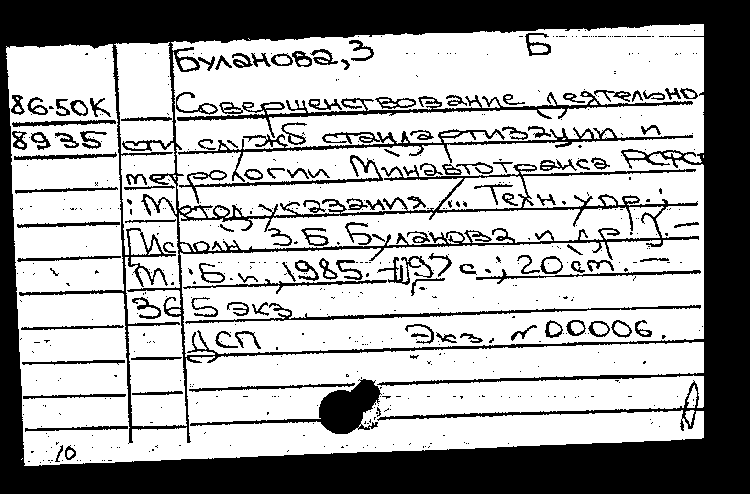 Буланова, З Б
86-50К Совершенствование деятельно-
8935 сти служб стандартизации и
метрологии Минавтотранса РСФСР
: Метод. указания / ... Техн. упр.;
[Исполн. З.Б. Буланова и др.]. —
М. : Б.и., 1985. — 97 с.; 20 см. —
365 экз.
ДСП. Экз. N 00006.
10